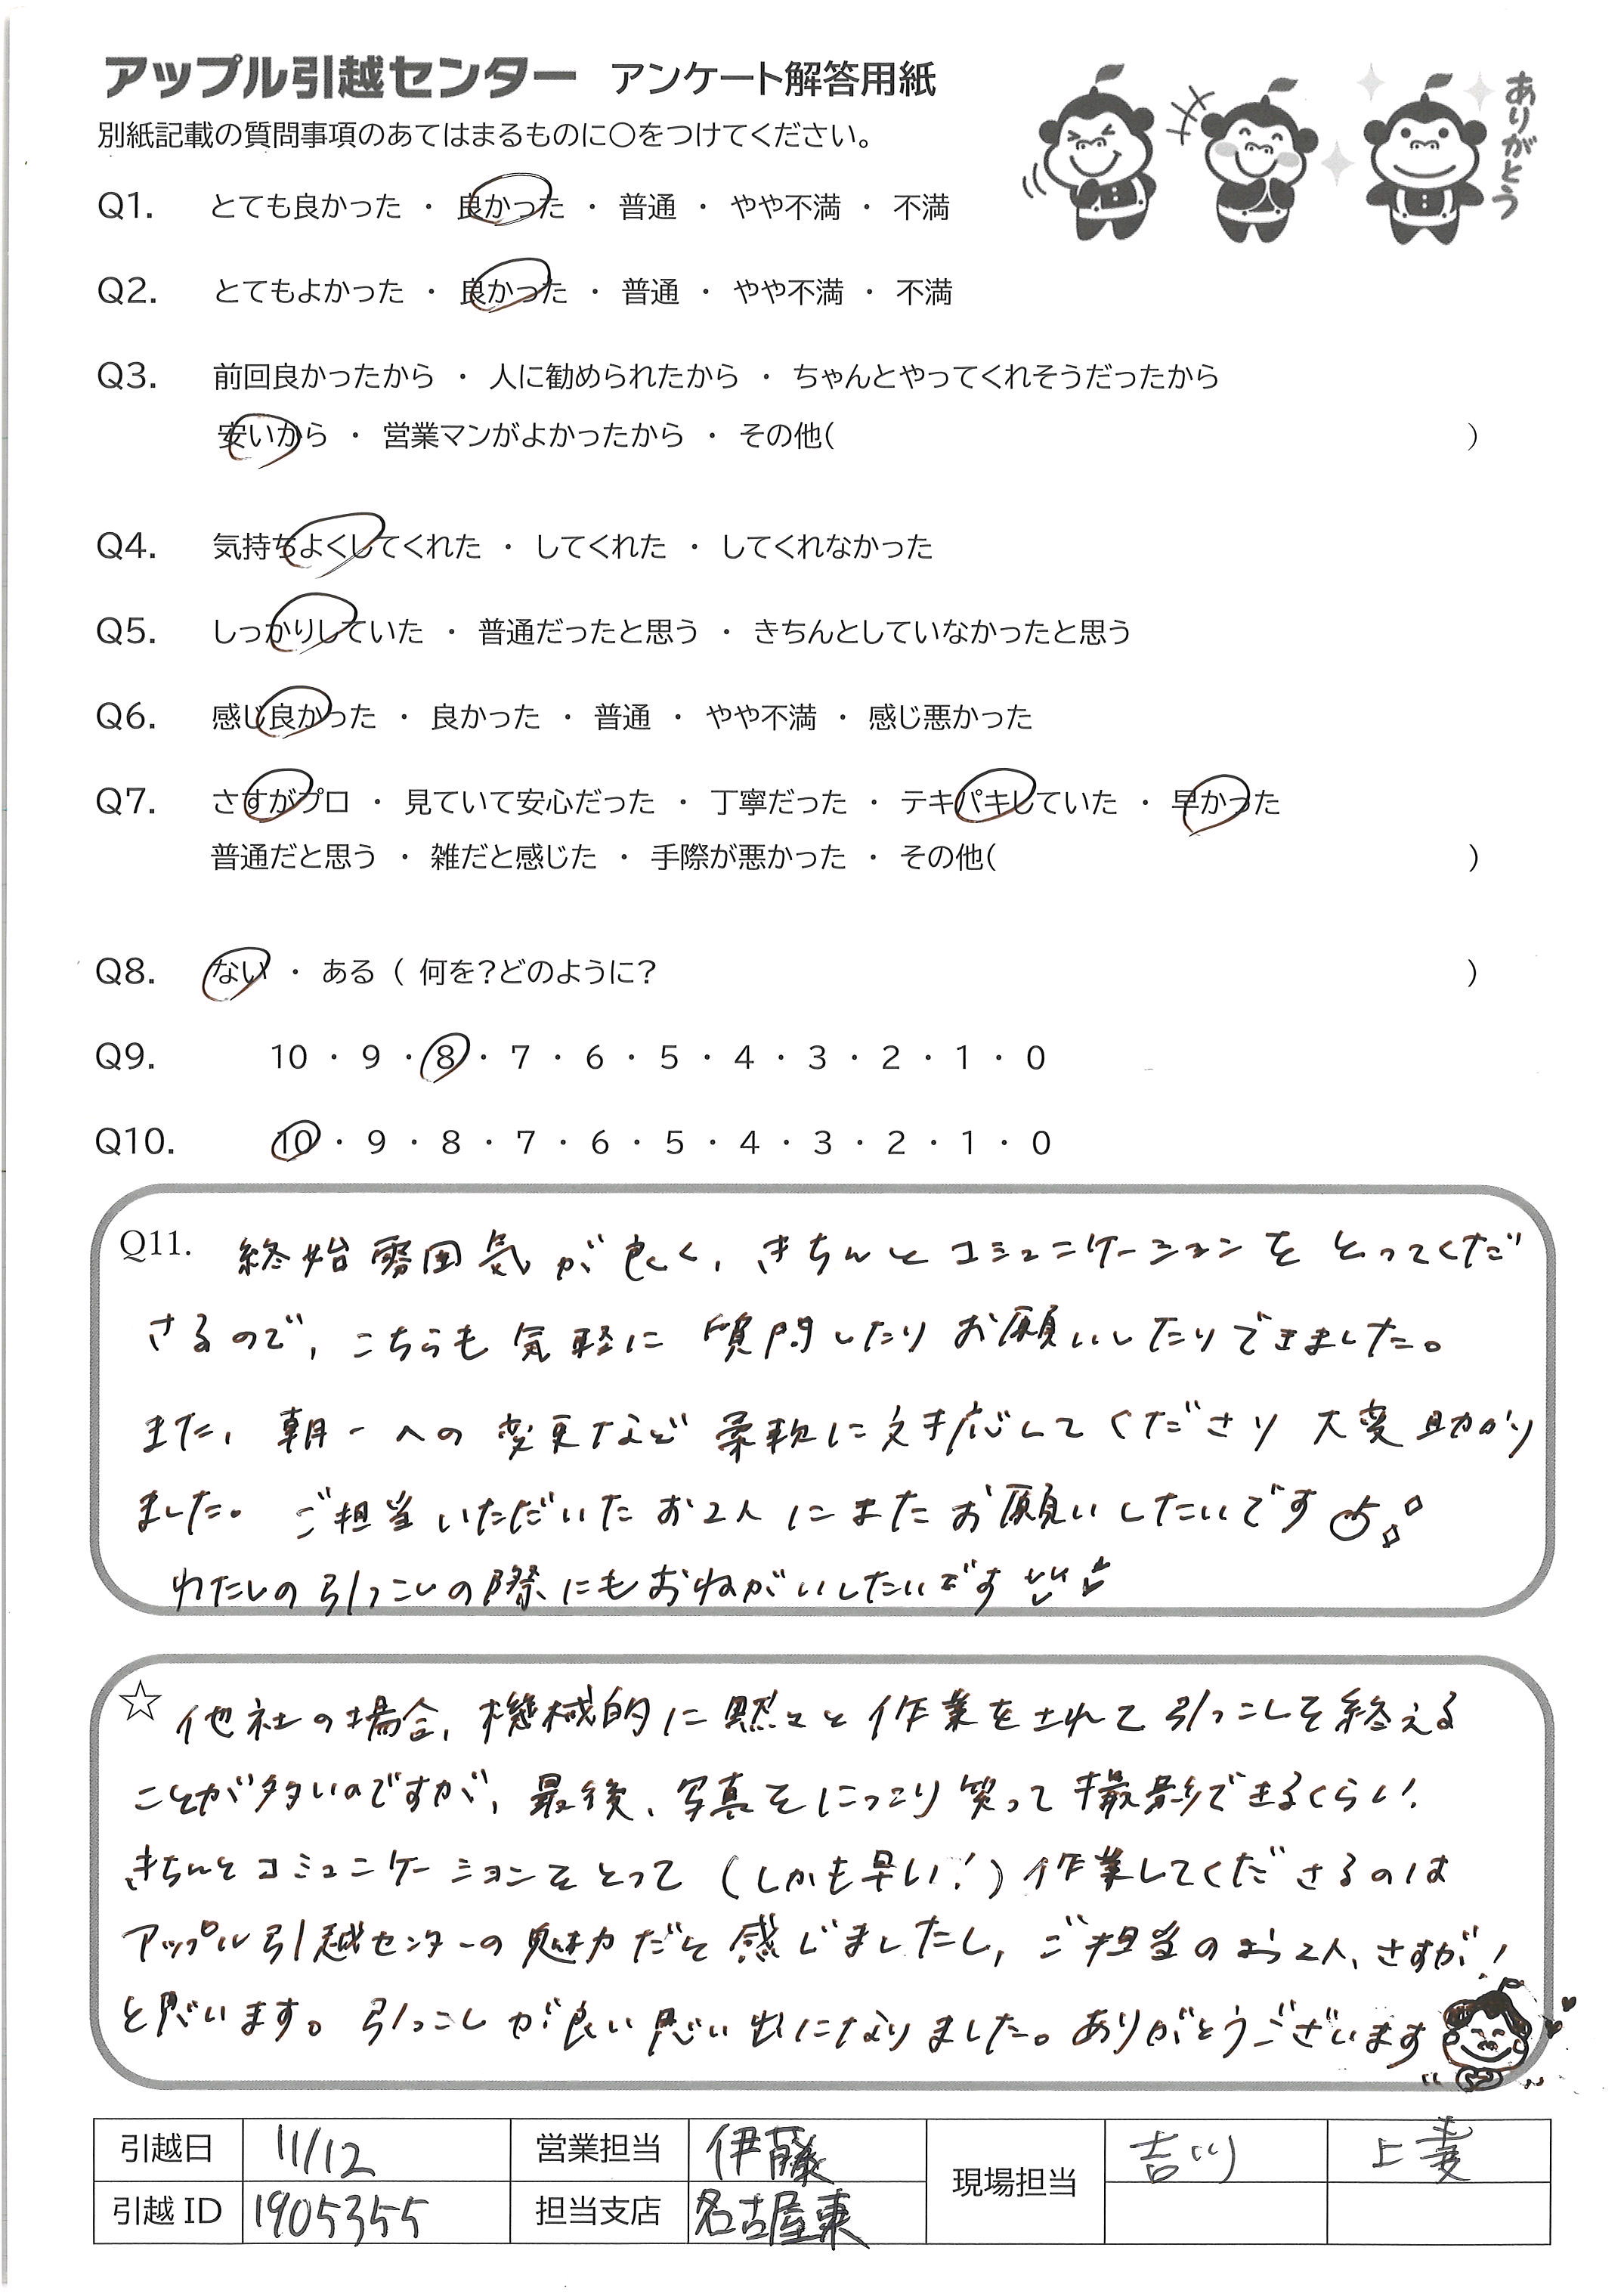 アップル引越センター アンケート解答用紙
ありがとう
別紙記載の質問事項のあてはまるものに○をつけてください。
Q1. とても良かった ・ 良かった ・ 普通 ・ やや不満 ・ 不満
Q2. とてもよかった ・ 良かった ・ 普通 ・ やや不満 ・ 不満
Q3. 前回良かったから ・ 人に勧められたから ・ ちゃんとやってくれそうだったから
安いから ・ 営業マンがよかったから ・ その他( )
Q4. 気持ちよくしてくれた ・ してくれた ・ してくれなかった
Q5. しっかりしていた ・ 普通だったと思う ・ きちんとしていなかったと思う
Q6. 感じ良かった ・ 良かった ・ 普通 ・ やや不満 ・ 感じ悪かった
Q7. さすがプロ ・ 見ていて安心だった ・ 丁寧だった ・ テキパキしていた ・ 早かった
普通だと思う ・ 雑だと感じた ・ 手際が悪かった ・ その他( )
Q8. ない ・ ある ( 何を?どのように? )
Q9. 10 ・ 9 ・ 8 ・ 7 ・ 6 ・ 5 ・ 4 ・ 3 ・ 2 ・ 1 ・ 0
Q10. 10 ・ 9 ・ 8 ・ 7 ・ 6 ・ 5 ・ 4 ・ 3 ・ 2 ・ 1 ・ 0
Q11. 終始雰囲気が良く、きちんとコミュニケーションをとってくだ
さるので、こちらも気軽に質問したりお願いしたりできました。
また、朝一への変更など柔軟に対応してくださり大変助かり
ました。ご担当いただいたお2人にまたお願いしたいです
わたしの引っこしの際にもおねがいしたいです
☆ 他社の場合、機械的に黙々と作業をされて引っこしを終える
ことが多いのですが、最後、写真をにっこり笑って撮影できるくらい!
きちんとコミュニケーションをとって(しかも早い!)作業してくださるのは
アップル引越センターの魅力だと感じましたし、ご担当のお2人、さすが!
と思います。引っこしが良い思い出になりました。ありがとうございます
引越日 11/12 営業担当 伊藤 現場担当 吉川 上妻
引越ID 1905355 担当支店 名古屋東